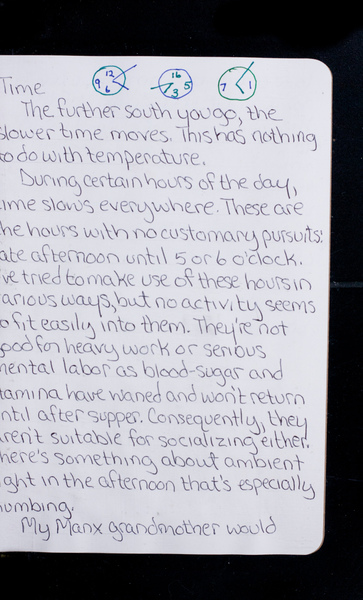 12 9 6 16 5 3 7 1
Time
The further south you go, the
slower time moves. This has nothing
to do with temperature.
During certain hours of the day,
ime slows everywhere. These are
he hours with no customary pursuits:
ate afternoon until 5 or 6 o'clock.
've tried to make use of these hours in
arious ways, but no activity seems
o fit easily into them. They're not
ood for heavy work or serious
mental labor as blood-sugar and
tamina have waned and won't return
ntil after supper. Consequently, they
ren't suitable for socializing either.
here's something about ambient
ght in the afternoon that's especially
umbing.
My Manx grandmother would